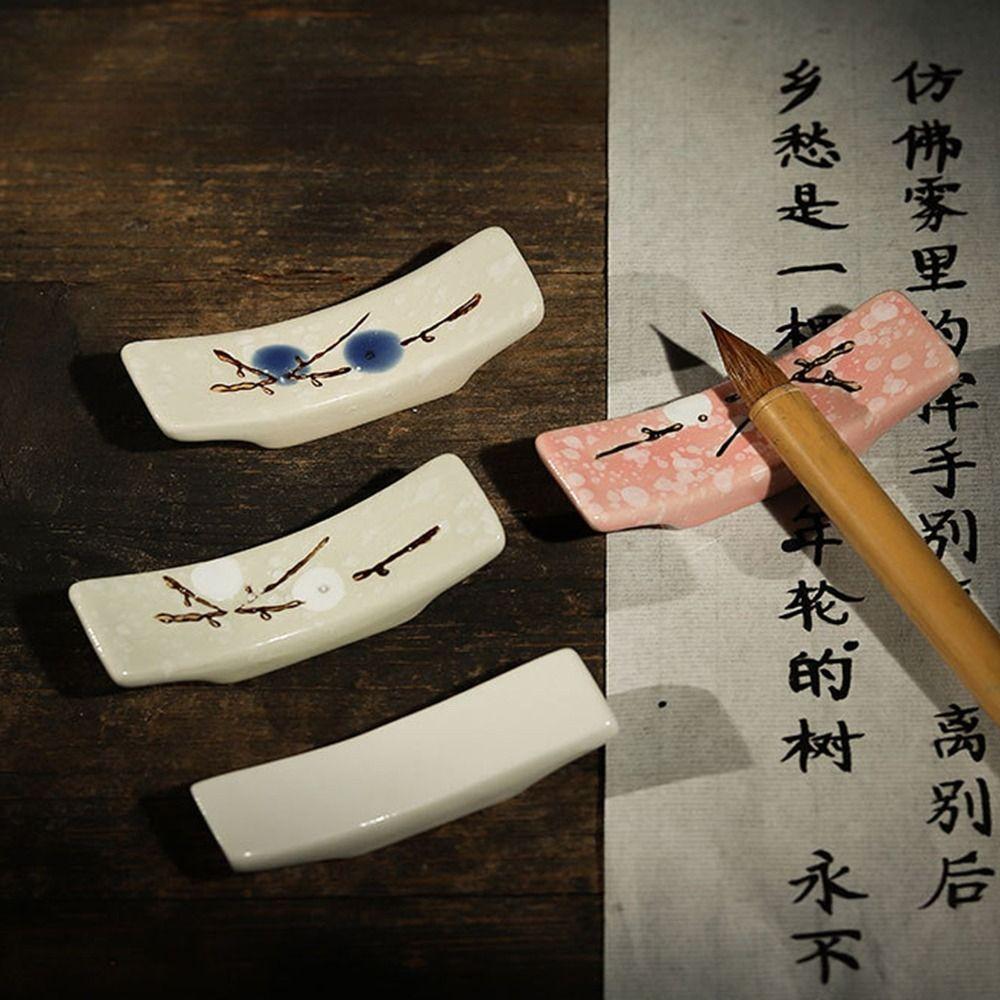 仿佛雾里的挥手别 离别后
乡愁是一棵 年轮的树 永不